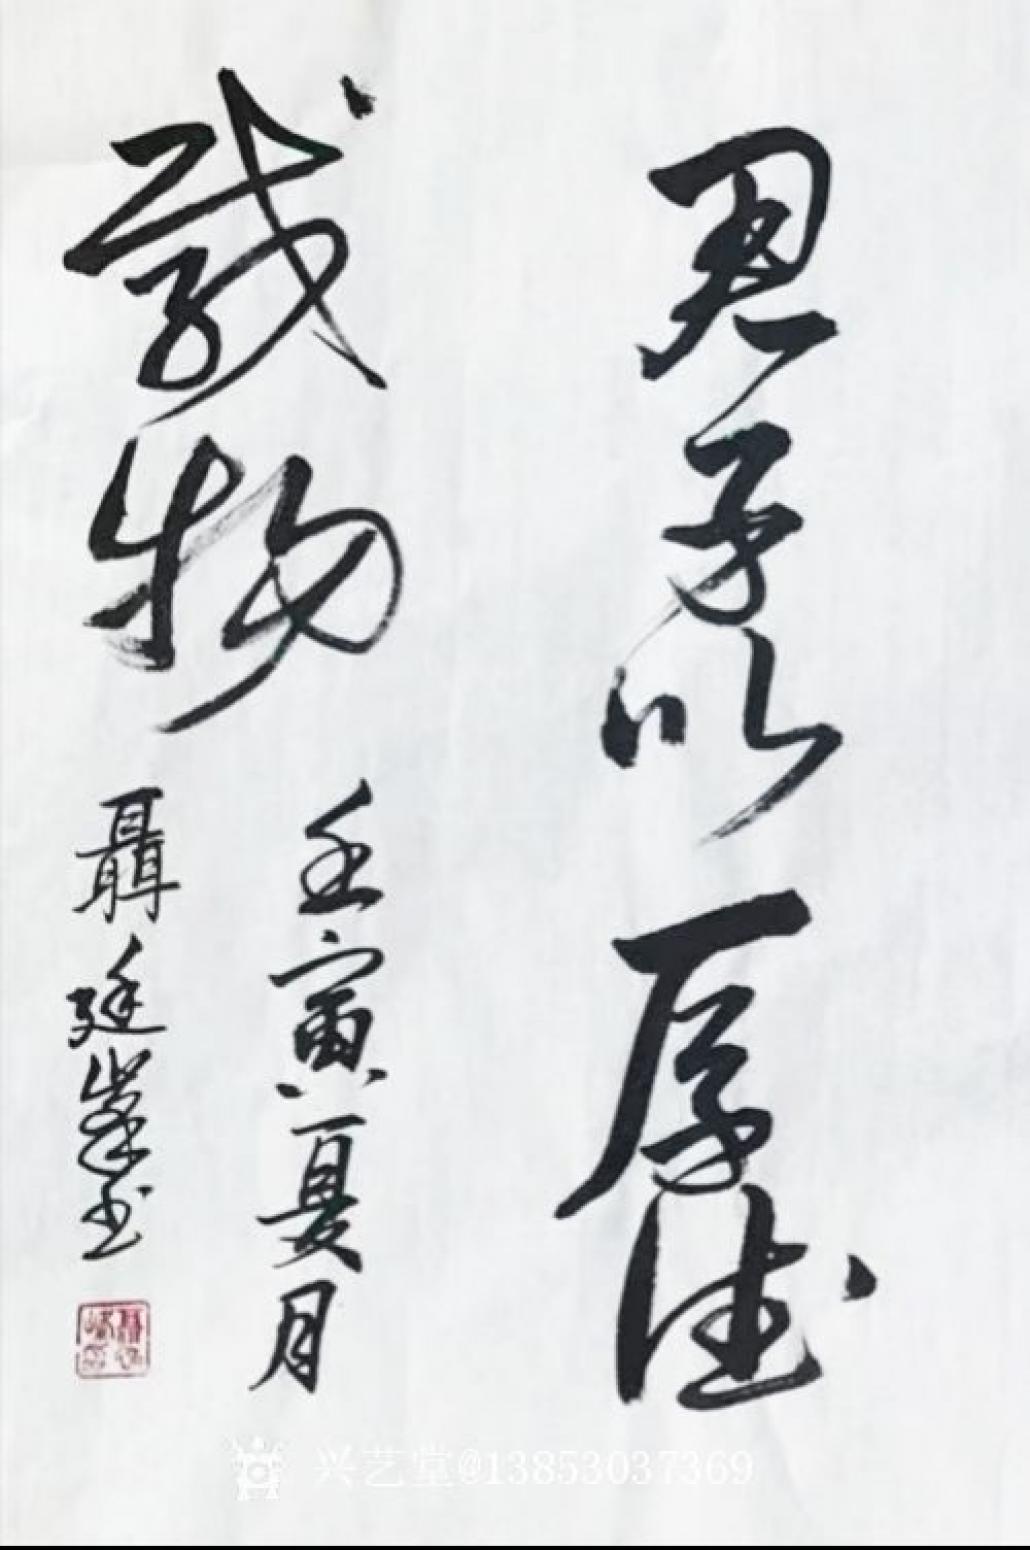 君子以厚德
載物
壬寅夏月
聶廷峯书
兴艺堂@13853037369